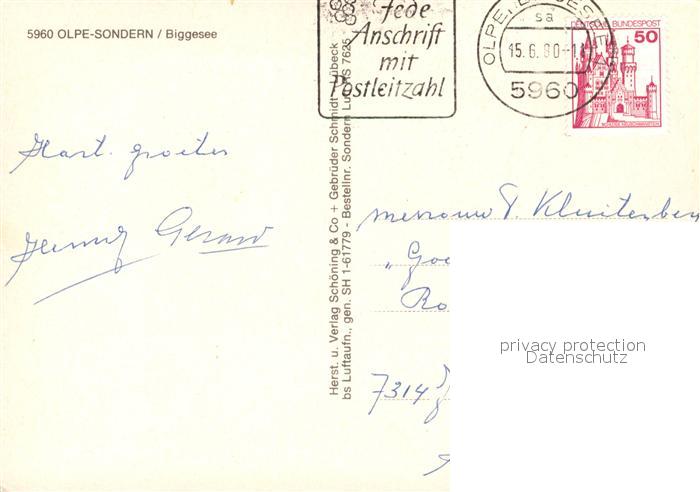 5960 OLPE-SONDERN / Biggesee
Jede
Anschrift
mit
Postleitzahl
sa
15.6.80-1
5960
DEUTSCHE BUNDESPOST
50
Hart. groeten
Gerard
Herst. u. Verlag Schöning & Co + Gebrüder Schmidt Lübeck
bs Luftaufn., gen. SH 1-61779 - Bestellnr. Sondern Lu 7625
mevrouw T. Kluitenberg
"Goe
Ro
7314
privacy protection
Datenschutz